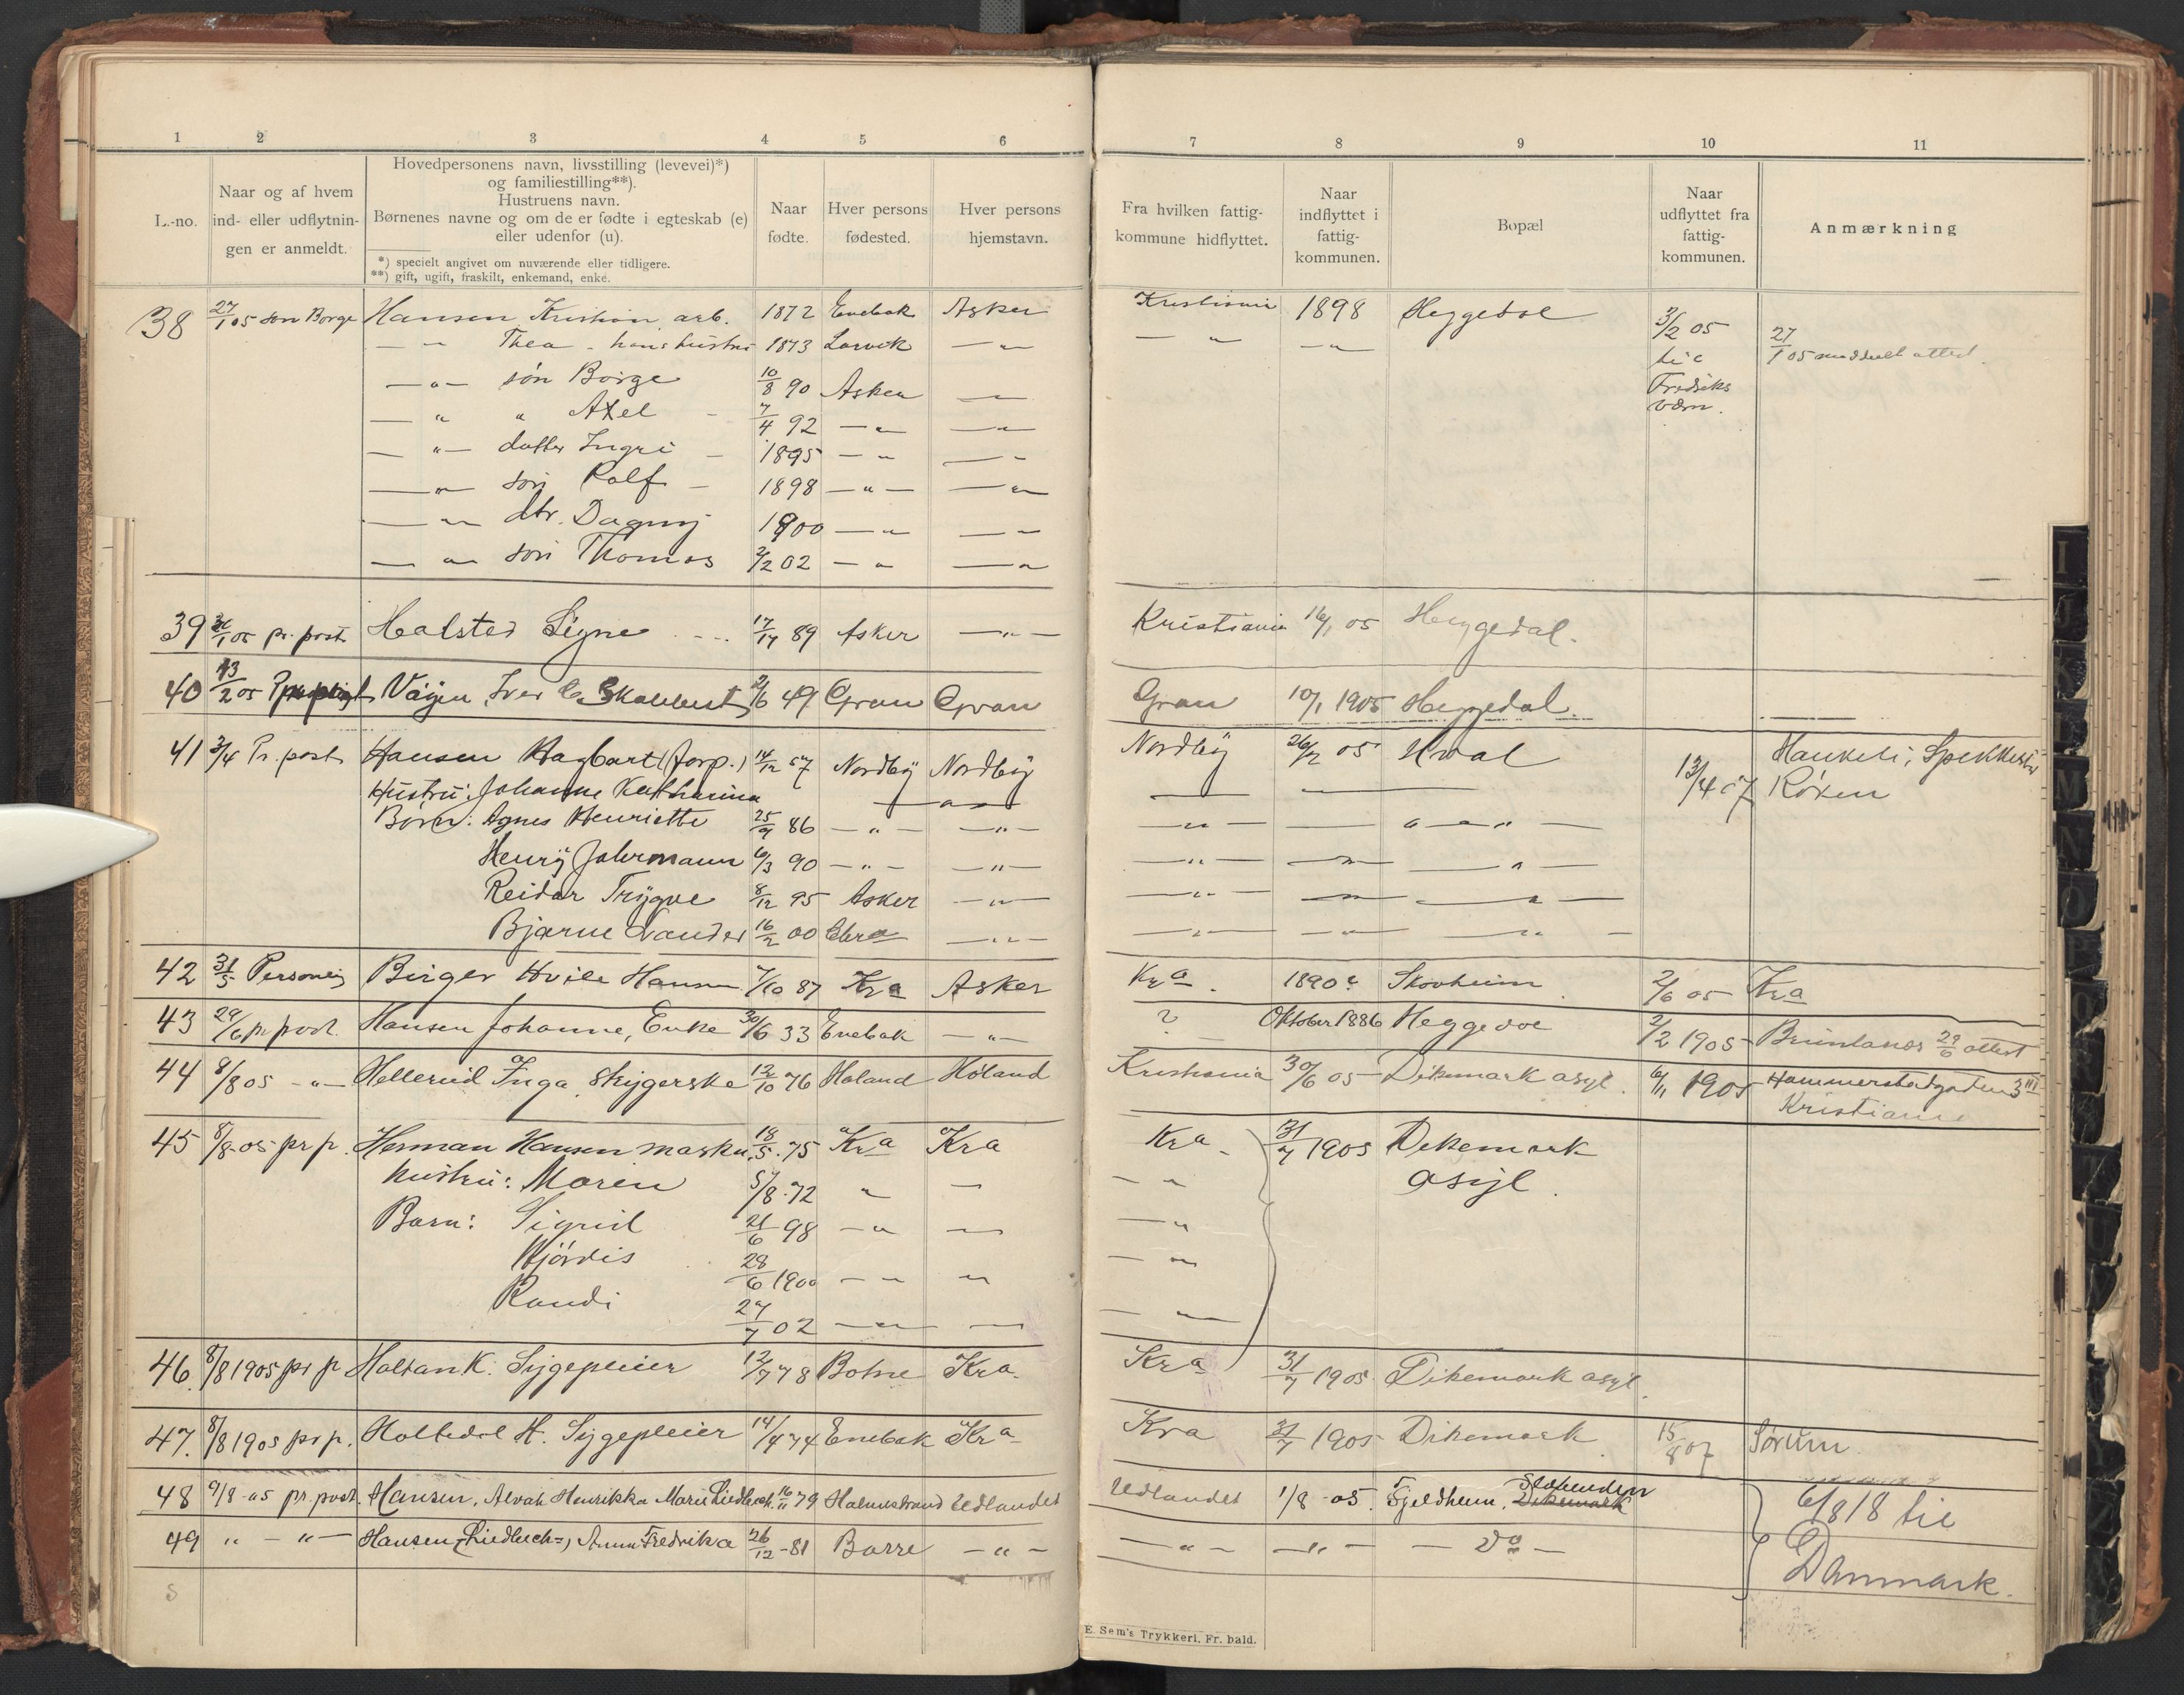 1 2 3 4 5 6 7 8 9 10 11
L.-no.
Naar og af hvem
ind- eller udflytnin-
gen er anmeldt.
Hovedpersonens navn, livsstilling (levevei)*)
og familiestilling**).
Hustruens navn.
Børnenes navne og om de er fødte i egteskab (e)
eller udenfor (u).
*) specielt angivet om nuværende eller tidligere.
**) gift, ugift, fraskilt, enkemand, enke.
Naar
fødte.
Hver persons
fødested.
Hver persons
hjemstavn.
Fra hvilken fattig-
kommune hidflyttet.
Naar
indflyttet i
fattig-
kommunen.
Bopæl
Naar
udflyttet fra
fattig-
kommunen.
Anmærkning
38 27/1 05 søn Borge Hansen Kristian arb. 1872 Enebak Asker Kristiania 1898 Heggedal 3/2 05 til Fredriks værn. 27/1 05 meddelt attest.
— " — Thea - hans hustru 1873 Larvik — " — — " — — " —
— " — søn Borge 10/8 90 Asker — " —
— " " Axel - 7/4 92 — " — — " —
— " — datter Ingri - 1895 — " — — " —
— " — søn Rolf - 1898 — " — — " —
— " — dtr. Dagny 1900 — " — — " —
— " — søn Thomas 2/2 02 — " — — " —
39 /1 05 pr. post Halsted Signe 17/ 89 Asker — " — Kristiania 16/1 05 Heggedal.
40 13/2 05 Vøyen, Iver 2/6 49 Gran Gran Gran 10/1 1905 Heggedal.
41 3/4 Pr. post Hansen Hagbart (forp.) 14/12 57 Nordby Nordby Nordby 26/2 05 Hval 13/4 07 Røken
Hustru: Johanne Katharina — " — — —
Børn: Agnes Henriette 25/9 86 — " — — " — — " — — " " " —
Henry Johrmann 6/3 90 — " — — " — — " — — " — — " —
Reidar Trygve 8/12 95 Asker — " — — " — — " — — " —
Bjarne Evander 16/2 00 — " — — " — — " — — " —
42 31/5 Personlig Birger Hvile Hansen 7/10 87 Kra Asker Kra. 1890? Skovheim 2/6 05 Kra
43 29/6 pr post. Hansen Johanne, Enke 30/6 33 Enebak — " — ? Oktober 1886 Heggedal 2/2 1905 Brunlanæs 29/6 attest
44 8/8 05 - " — Hellerud Inga, Strygerske 12/10 76 Høland Høland Kristiania 30/6 05 Dikemark asyl. 6/11 1905 Hammerstadgaden 3 III Kristiania
45 8/8-05 pr p. Herman Hansen maskn. 18/5 75 Kra Kra Kra - 31/7 1905 Dikemark
hustru: Maren 5/8 72 " — — " asyl.
Barn: Sigrid 21/6 98 — " — — " —
Hjørdis 28/6 1900 — " — — " —
Randi 27/7 02 — " — — " —
46. 8/8 1905 pr p Holtan K. Sygepleier 12/7 78 Botne Kra. Kra 31/7 1905 Dikemark asyl.
47. 8/8 1905 pr p. Holtedal H. Sygepleier 14/4 74 Enebak Kra Kra 31/7 1905 Dikemark 15/8 07 Sørum.
48 9/8-05 pr. post. Hansen, Alvah Henrikka Marie Liedbech. 16/11 79 Holmestrand Udlandet Udlandet 1/8 -05. Fjeldheim, Dikemark Slæbenden 6/8 18 til
49 " - " — Hansen (Liedbech-), Anna Fredrika 26/12 -81 Borre — " — — " — — " — — Do — Danmark.
E. Sem's Trykkeri, Fr. hald.
I
M
N
O
P